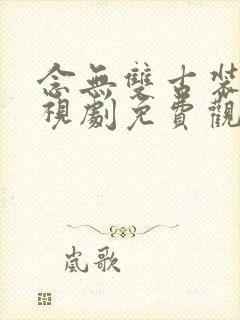 念無雙古裝
視劇免費觀
嵐歌